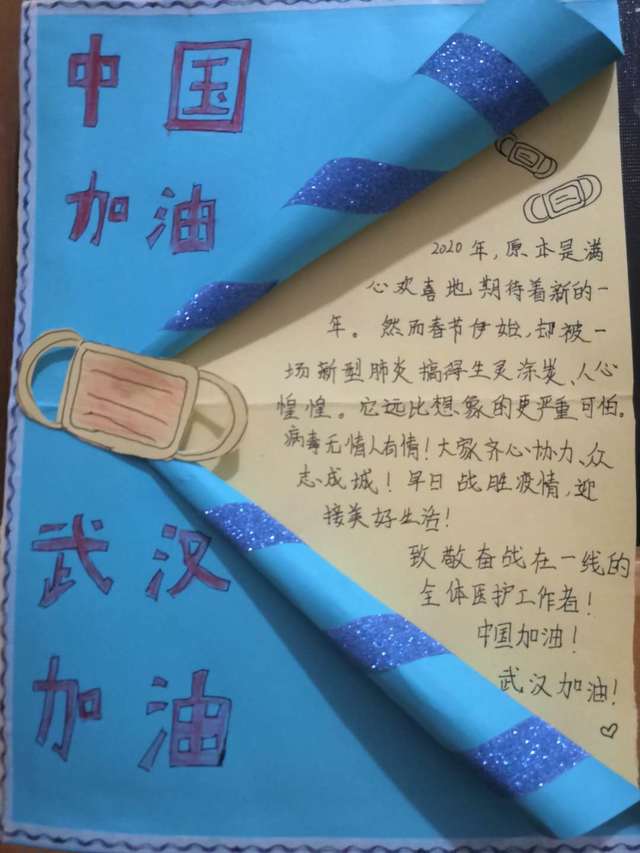 中国
加油
武汉
加油
2020年,原本是满
心欢喜地期待着新的一
年。然而春节伊始,却被一
场新型肺炎搞得生灵涂炭、人心
惶惶。它远比想象的更严重可怕。
病毒无情人有情!大家齐心协力、众
志成城!早日战胜疫情,迎
接美好生活!
致敬奋战在一线的
全体医护工作者!
中国加油!
武汉加油!